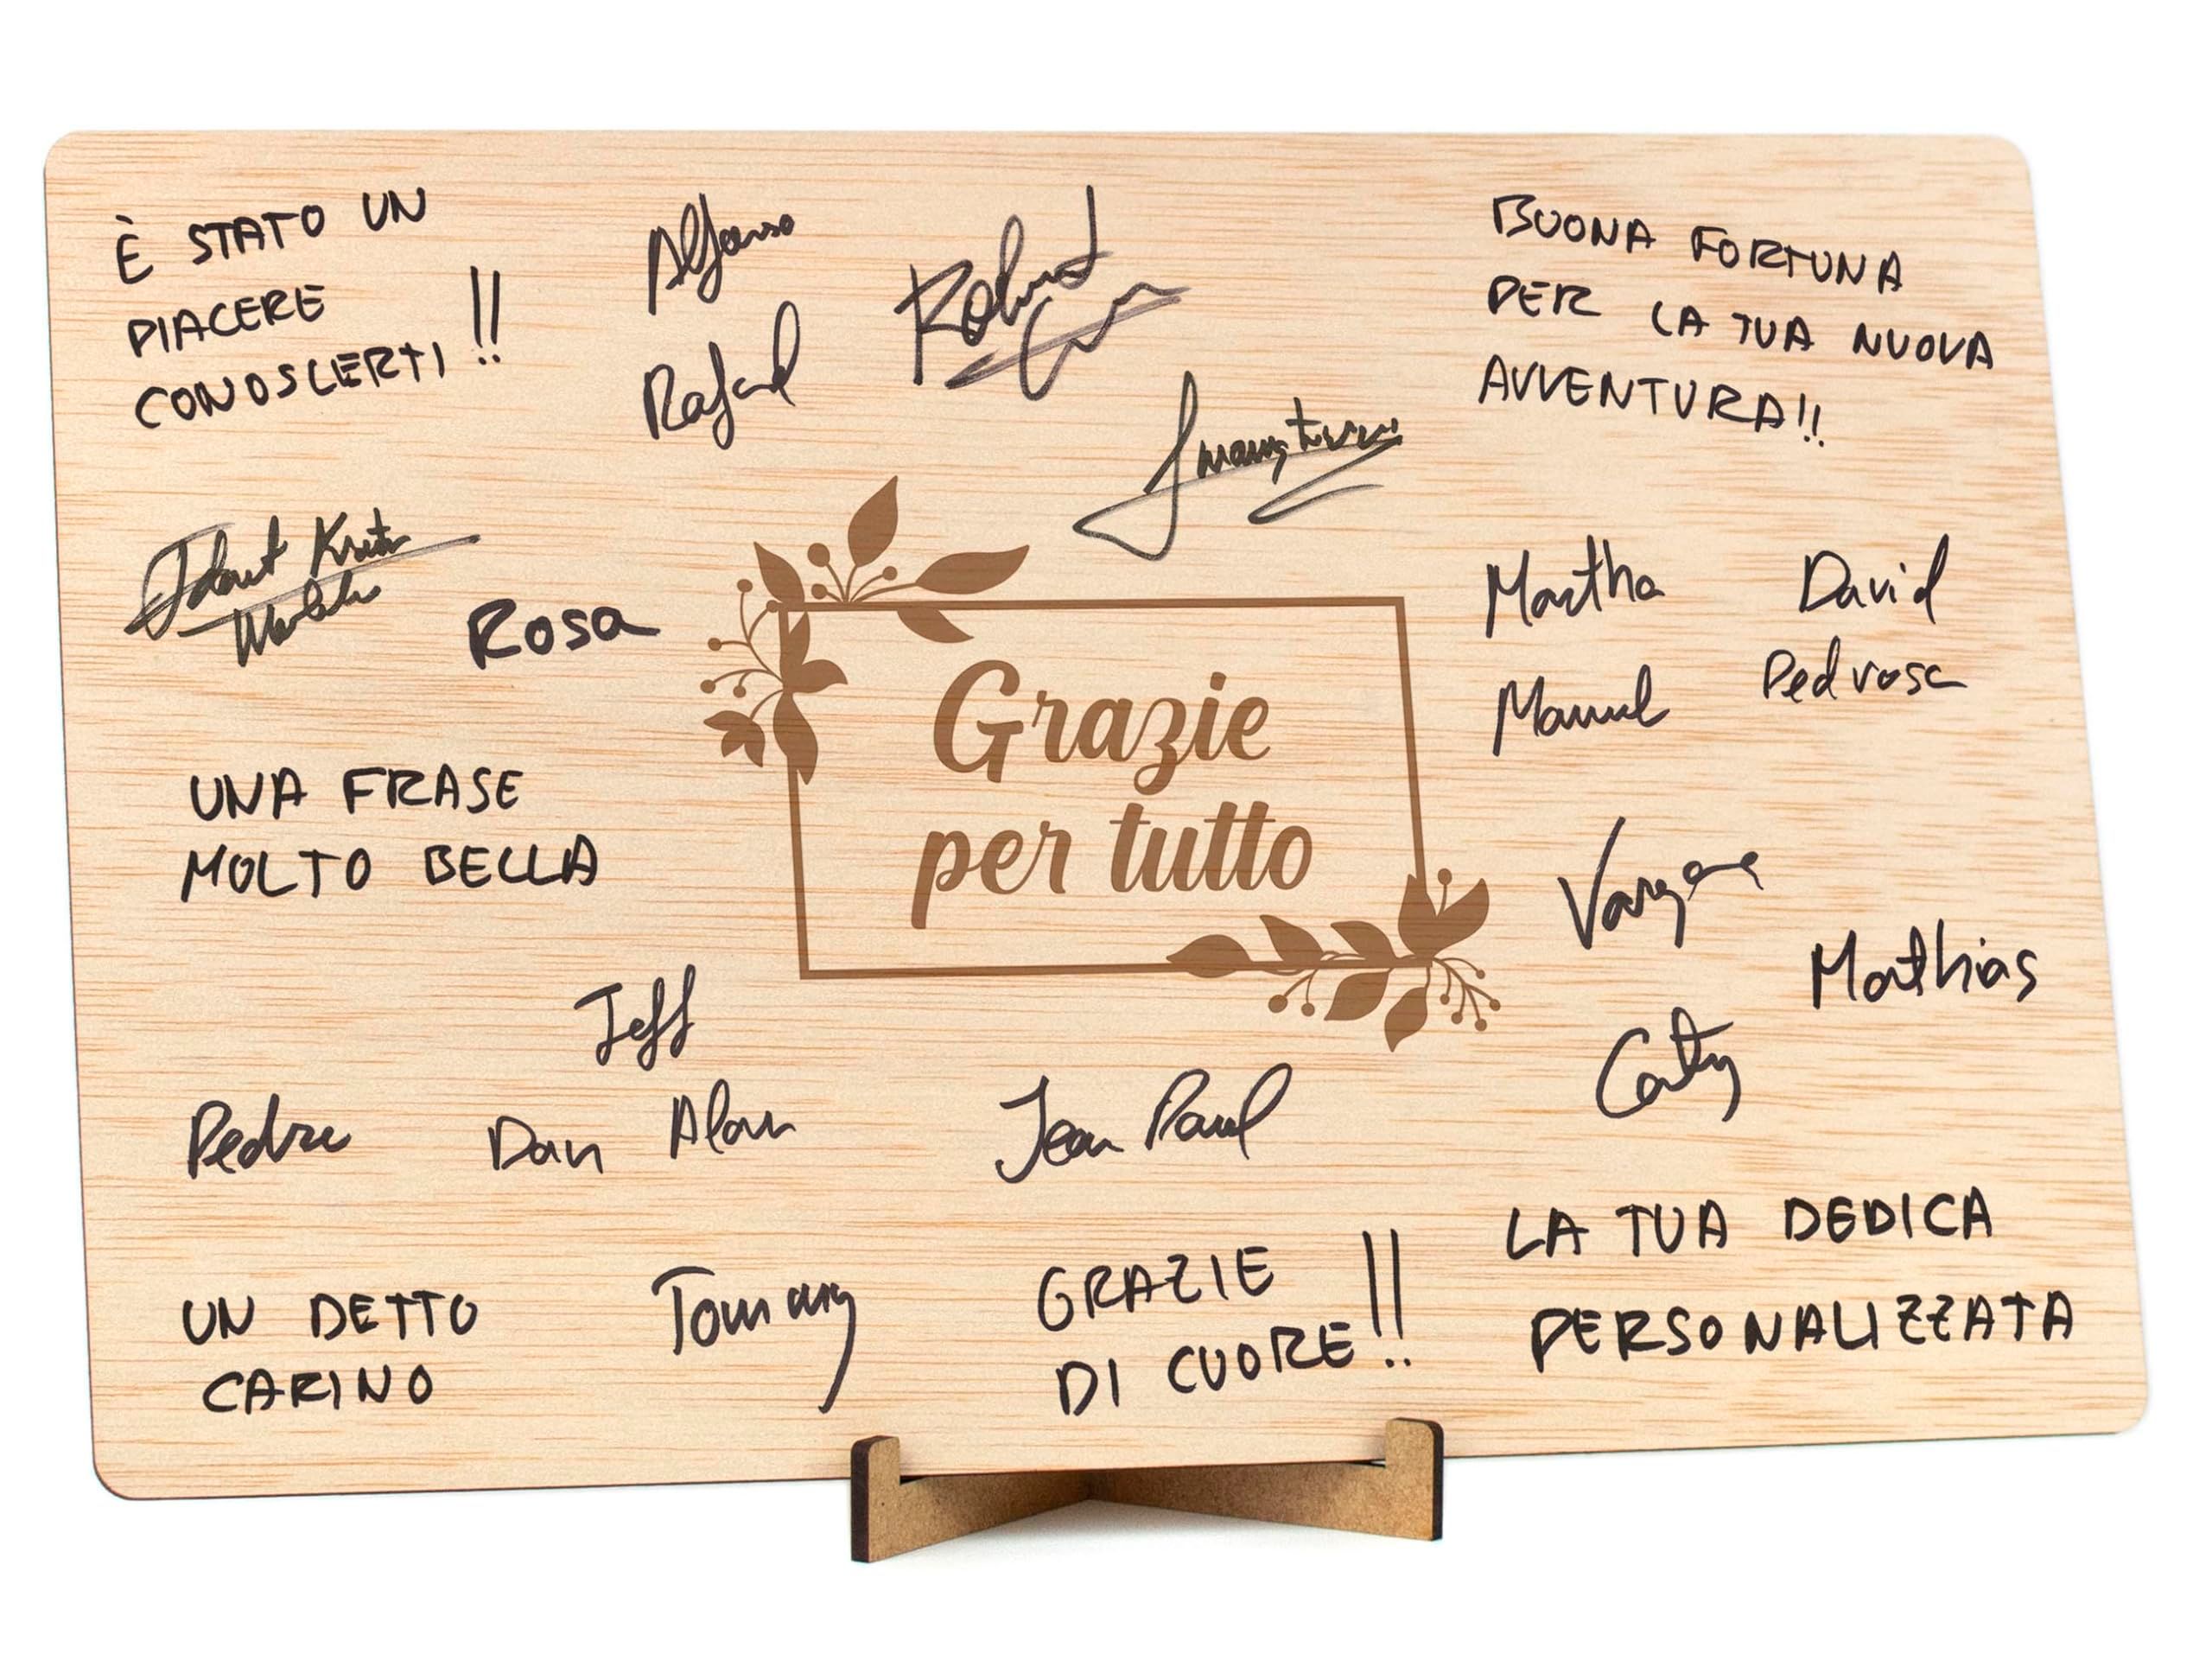 È STATO UN
PIACERE
CONOSCERTI!!
Alfonso
Rafael
Robert
BUONA FORTUNA
PER LA TUA NUOVA
AVVENTURA!!
Rosa
Martha
David
Manuel
Pedrosa
Grazie
per tutto
UNA FRASE
MOLTO BELLA
Mathias
Jeff
Caty
Pedro
Dan
Alan
Jean Paul
UN DETTO
CARINO
Tommy
GRAZIE
DI CUORE!!
LA TUA DEDICA
PERSONALIZZATA